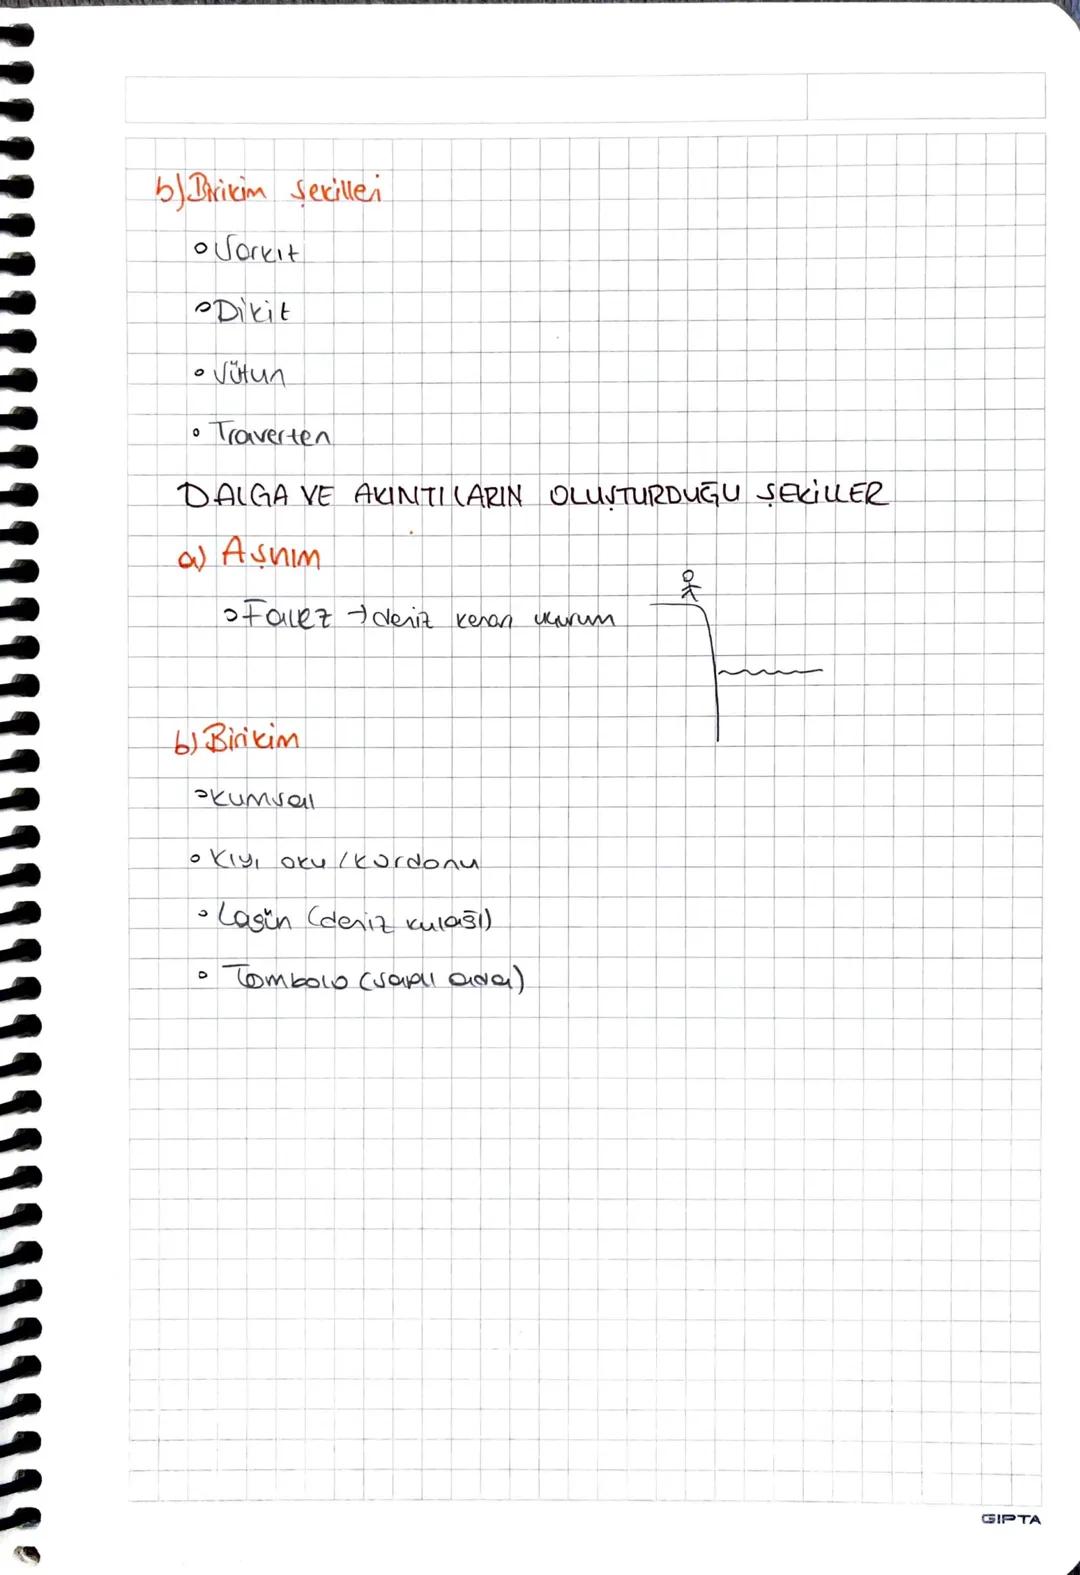 b) Birikim Şekilleri
Sarkıt
Dikit
Sütun
Traverten
DALGA VE AKINTILARIN OLUŞTURDUĞU ŞEKİLLER
a) Aşnım
Falez → deniz kenarı uçurum
b) Birikim
Kumsal
Kıyı oku / kordonu
Lagün (deniz kulağı)
Tombolo (saplı ada)
GIPTA